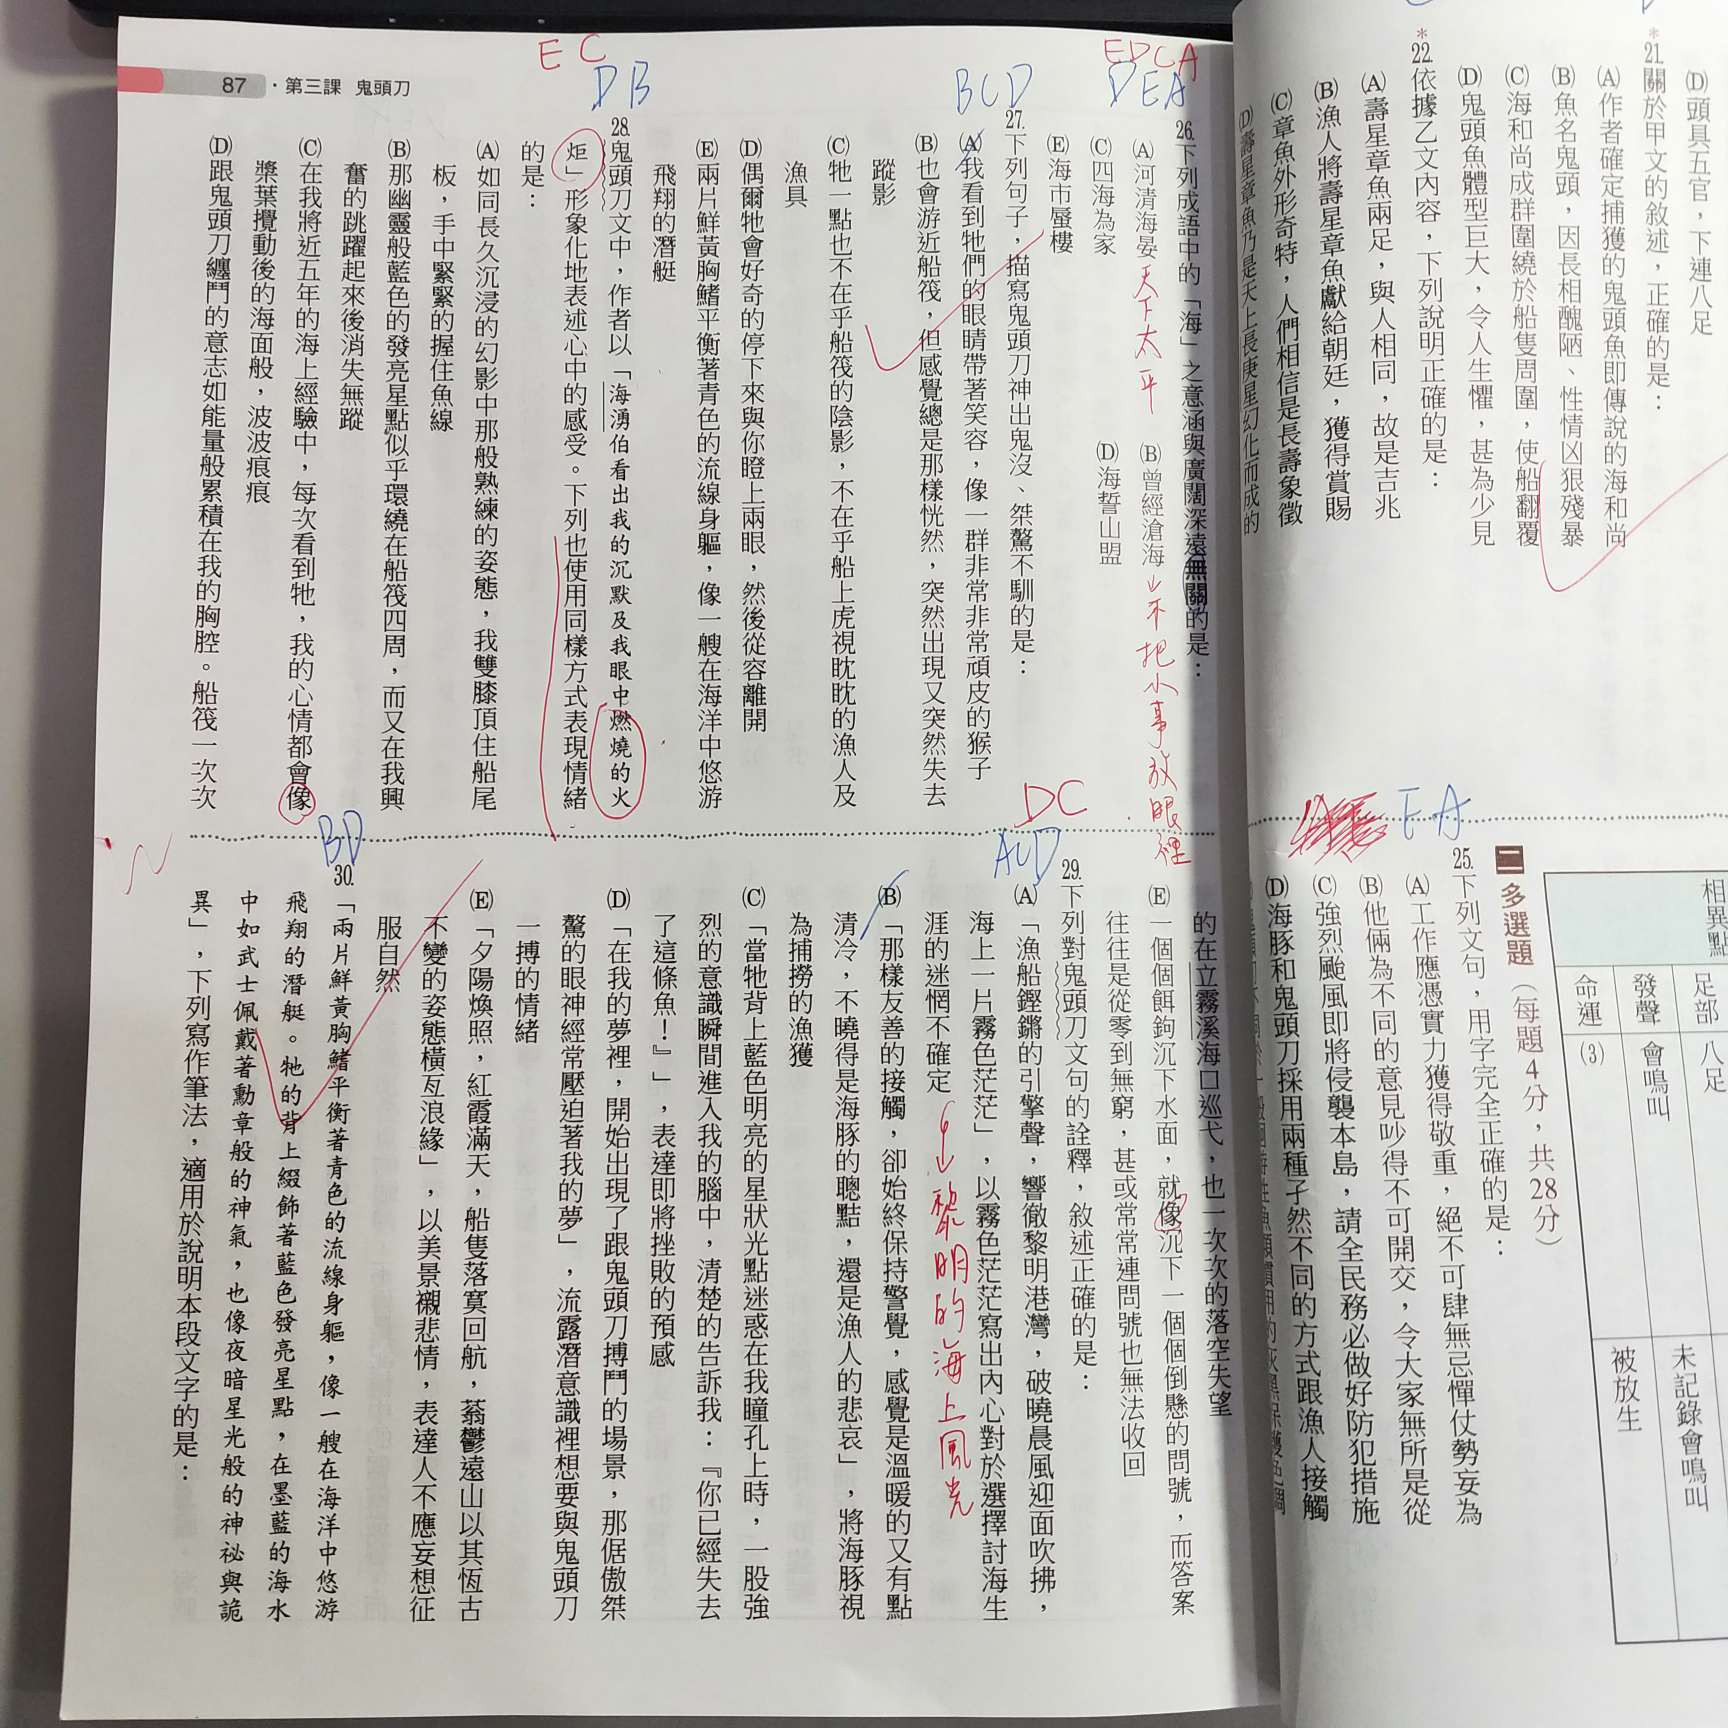 (D)頭具五官，下連八足
*21.關於甲文的敘述，正確的是：
(A)作者確定捕獲的鬼頭魚即傳說的海和尚
(B)魚名鬼頭，因長相醜陋、性情凶狠殘暴
(C)海和尚成群圍繞於船隻周圍，使船翻覆
(D)鬼頭魚體型巨大，令人生懼，甚為少見
*22.依據乙文內容，下列說明正確的是：
(A)壽星章魚兩足，與人相同，故是吉兆
(B)漁人將壽星章魚獻給朝廷，獲得賞賜
(C)章魚外形奇特，人們相信是長壽象徵
(D)壽星章魚乃是天上長庚星幻化而成的
相異點
足部
八足
發聲
會鳴叫
未記錄會鳴叫
命運
(3)
被放生
二 多選題（每題4分，共28分）
EA
25.下列文句，用字完全正確的是：
(A)工作應憑實力獲得敬重，絕不可肆無忌憚仗勢妄為
(B)他倆為不同的意見吵得不可開交，令大家無所是從
(C)強烈颱風即將侵襲本島，請全民務必做好防犯措施
(D)海豚和鬼頭刀採用兩種孑然不同的方式跟漁人接觸
87・第三課 鬼頭刀
EDCA
DEA
26.下列成語中的「海」之意涵與廣闊深遠無關的是：
(A)河清海晏 天下太平
(B)曾經滄海 不把小事放眼裡
(C)四海為家
(D)海誓山盟
(E)海市蜃樓
BCD
27.下列句子，描寫鬼頭刀神出鬼沒、桀驁不馴的是：
(A)我看到牠們的眼睛帶著笑容，像一群非常非常頑皮的猴子
(B)也會游近船筏，但感覺總是那樣恍然，突然出現又突然失去
蹤影
(C)牠一點也不在乎船筏的陰影，不在乎船上虎視眈眈的漁人及
漁具
(D)偶爾牠會好奇的停下來與你瞪上兩眼，然後從容離開
(E)兩片鮮黃胸鰭平衡著青色的流線身軀，像一艘在海洋中悠游
飛翔的潛艇
EC
DB
28.鬼頭刀文中，作者以「海湧伯看出我的沉默及我眼中燃燒的火
炬」形象化地表述心中的感受。下列也使用同樣方式表現情緒
的是：
(A)如同長久沉浸的幻影中那般熟練的姿態，我雙膝頂住船尾
板，手中緊緊的握住魚線
(B)那幽靈般藍色的發亮星點似乎環繞在船筏四周，而又在我興
奮的跳躍起來後消失無蹤
(C)在我將近五年的海上經驗中，每次看到牠，我的心情都會像
槳葉攪動後的海面般，波波痕痕
(D)跟鬼頭刀纏鬥的意志如能量般累積在我的胸腔。船筏一次次
的在立霧溪海口巡弋，也一次次的落空失望
(E)一個個餌鉤沉下水面，就像沉下一個個倒懸的問號，而答案
往往是從零到無窮，甚或常常連問號也無法收回
DC
ACD
29.下列對鬼頭刀文句的詮釋，敘述正確的是：
(A)「漁船鏗鏘的引擎聲，響徹黎明港灣，破曉晨風迎面吹拂，
海上一片霧色茫茫」，以霧色茫茫寫出內心對於選擇討海生
涯的迷惘不確定
黎明的海上風光
(B)「那樣友善的接觸，卻始終保持警覺，感覺是溫暖的又有點
清冷，不曉得是海豚的聰黠，還是漁人的悲哀」，將海豚視
為捕撈的漁獲
(C)「當牠背上藍色明亮的星狀光點迷惑在我瞳孔上時，一股強
烈的意識瞬間進入我的腦中，清楚的告訴我：『你已經失去
了這條魚！』」，表達即將挫敗的預感
(D)「在我的夢裡，開始出現了跟鬼頭刀搏鬥的場景，那倨傲桀
驁的眼神經常壓迫著我的夢」，流露潛意識裡想要與鬼頭刀
一搏的情緒
(E)「夕陽煥照，紅霞滿天，船隻落寞回航，蓊鬱遠山以其恆古
不變的姿態橫亙浪緣」，以美景襯悲情，表達人不應妄想征
服自然
BD
30.「兩片鮮黃胸鰭平衡著青色的流線身軀，像一艘在海洋中悠游
飛翔的潛艇。牠的背上綴飾著藍色發亮星點，在墨藍的海水
中如武士佩戴著勳章般的神氣，也像夜暗星光般的神祕與詭
異」，下列寫作筆法，適用於說明本段文字的是：